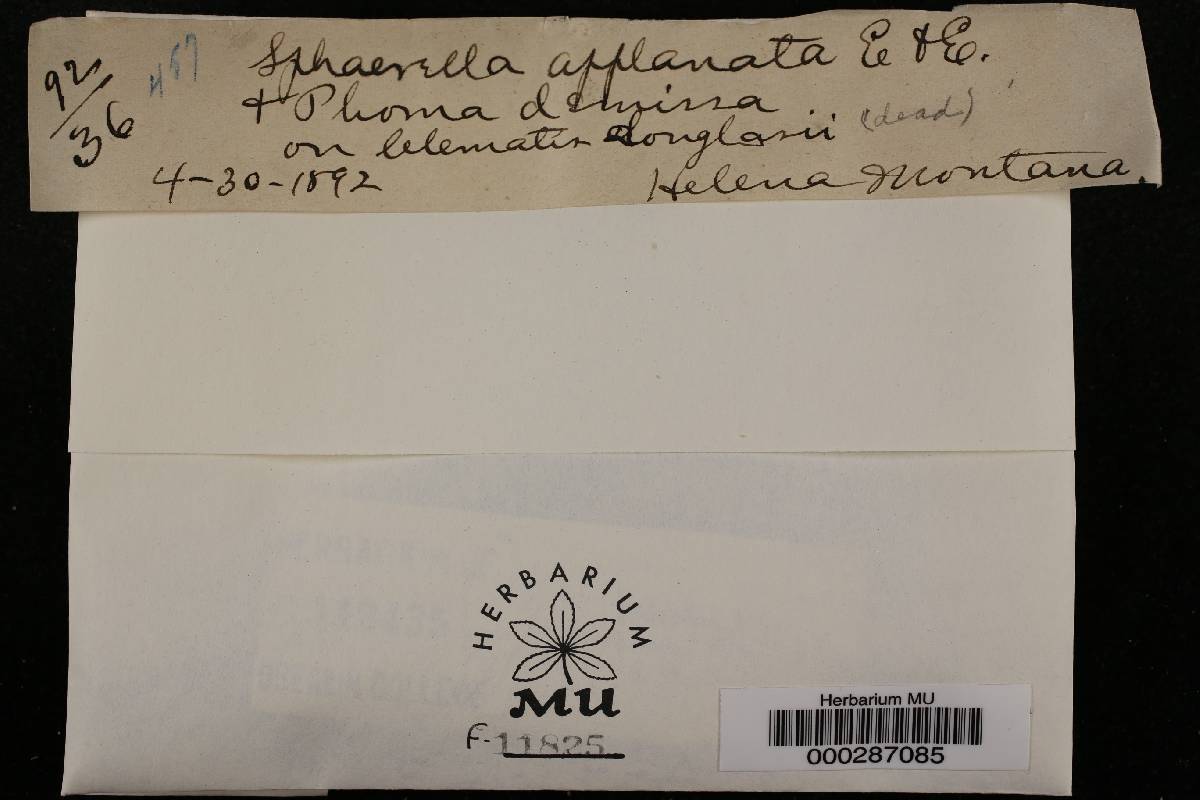 92/36
457
Sphaerella applanata E & E.
+ Phoma demissa.
on Clematis douglasii (dead)
4-30-1892
Helena Montana.
HERBARIUM
MU
F-11825
Herbarium MU
000287085